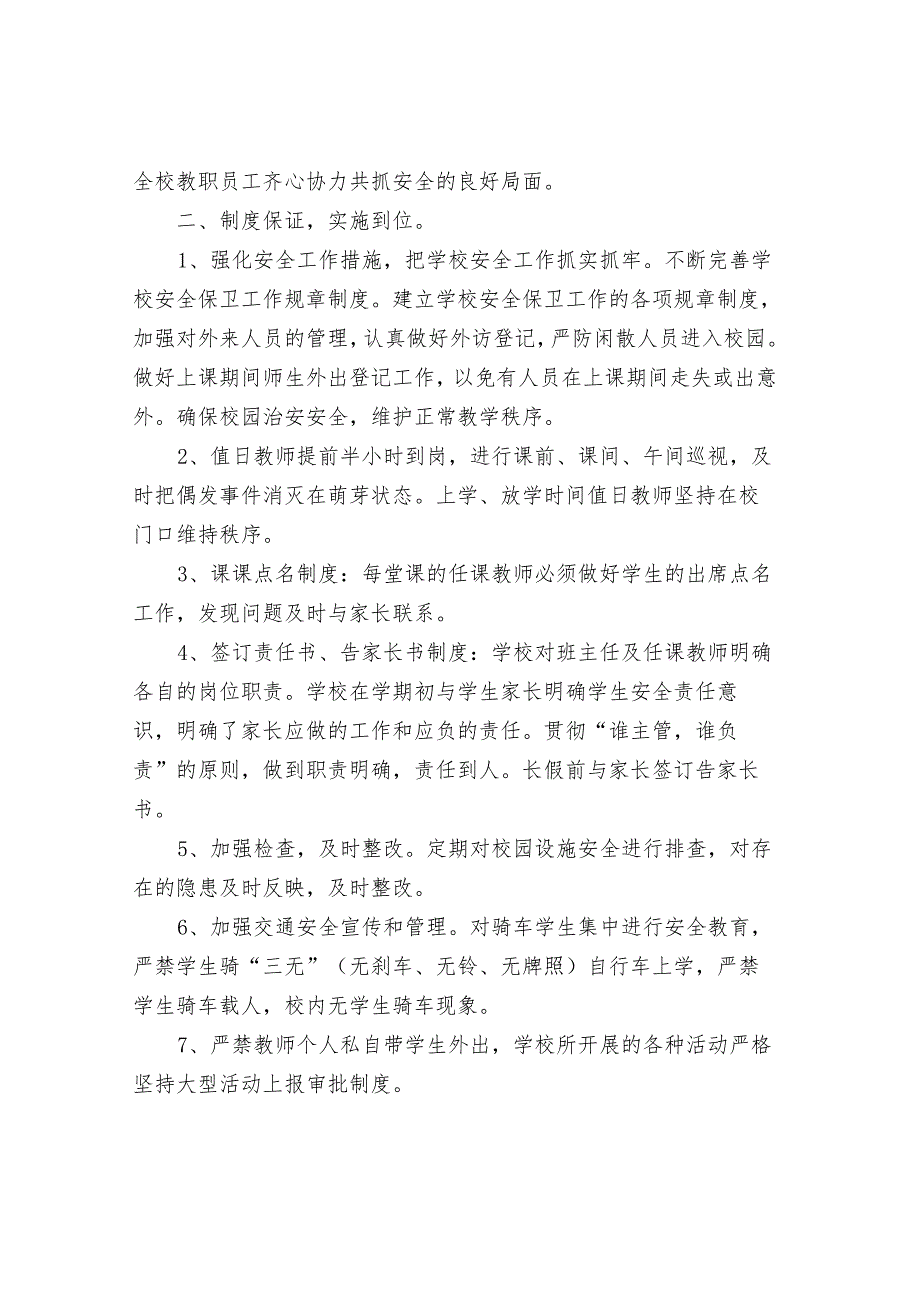 全校教职员工齐心协力共抓安全的良好局面。
二、制度保证，实施到位。
1、强化安全工作措施，把学校安全工作抓实抓牢。不断完善学
校安全保卫工作规章制度。建立学校安全保卫工作的各项规章制度，
加强对外来人员的管理，认真做好外访登记，严防闲散人员进入校园。
做好上课期间师生外出登记工作，以免有人员在上课期间走失或出意
外。确保校园治安安全，维护正常教学秩序。
2、值日教师提前半小时到岗，进行课前、课间、午间巡视，及
时把偶发事件消灭在萌芽状态。上学、放学时间值日教师坚持在校
门口维持秩序。
3、课课点名制度：每堂课的任课教师必须做好学生的出席点名
工作，发现问题及时与家长联系。
4、签订责任书、告家长书制度：学校对班主任及任课教师明确
各自的岗位职责。学校在学期初与学生家长明确学生安全责任意
识，明确了家长应做的工作和应负的责任。贯彻“谁主管，谁负
责”的原则，做到职责明确，责任到人。长假前与家长签订告家长
书。
5、加强检查，及时整改。定期对校园设施安全进行排查，对存
在的隐患及时反映，及时整改。
6、加强交通安全宣传和管理。对骑车学生集中进行安全教育，
严禁学生骑“三无”（无刹车、无铃、无牌照）自行车上学，严禁
学生骑车载人，校内无学生骑车现象。
7、严禁教师个人私自带学生外出，学校所开展的各种活动严格
坚持大型活动上报审批制度。